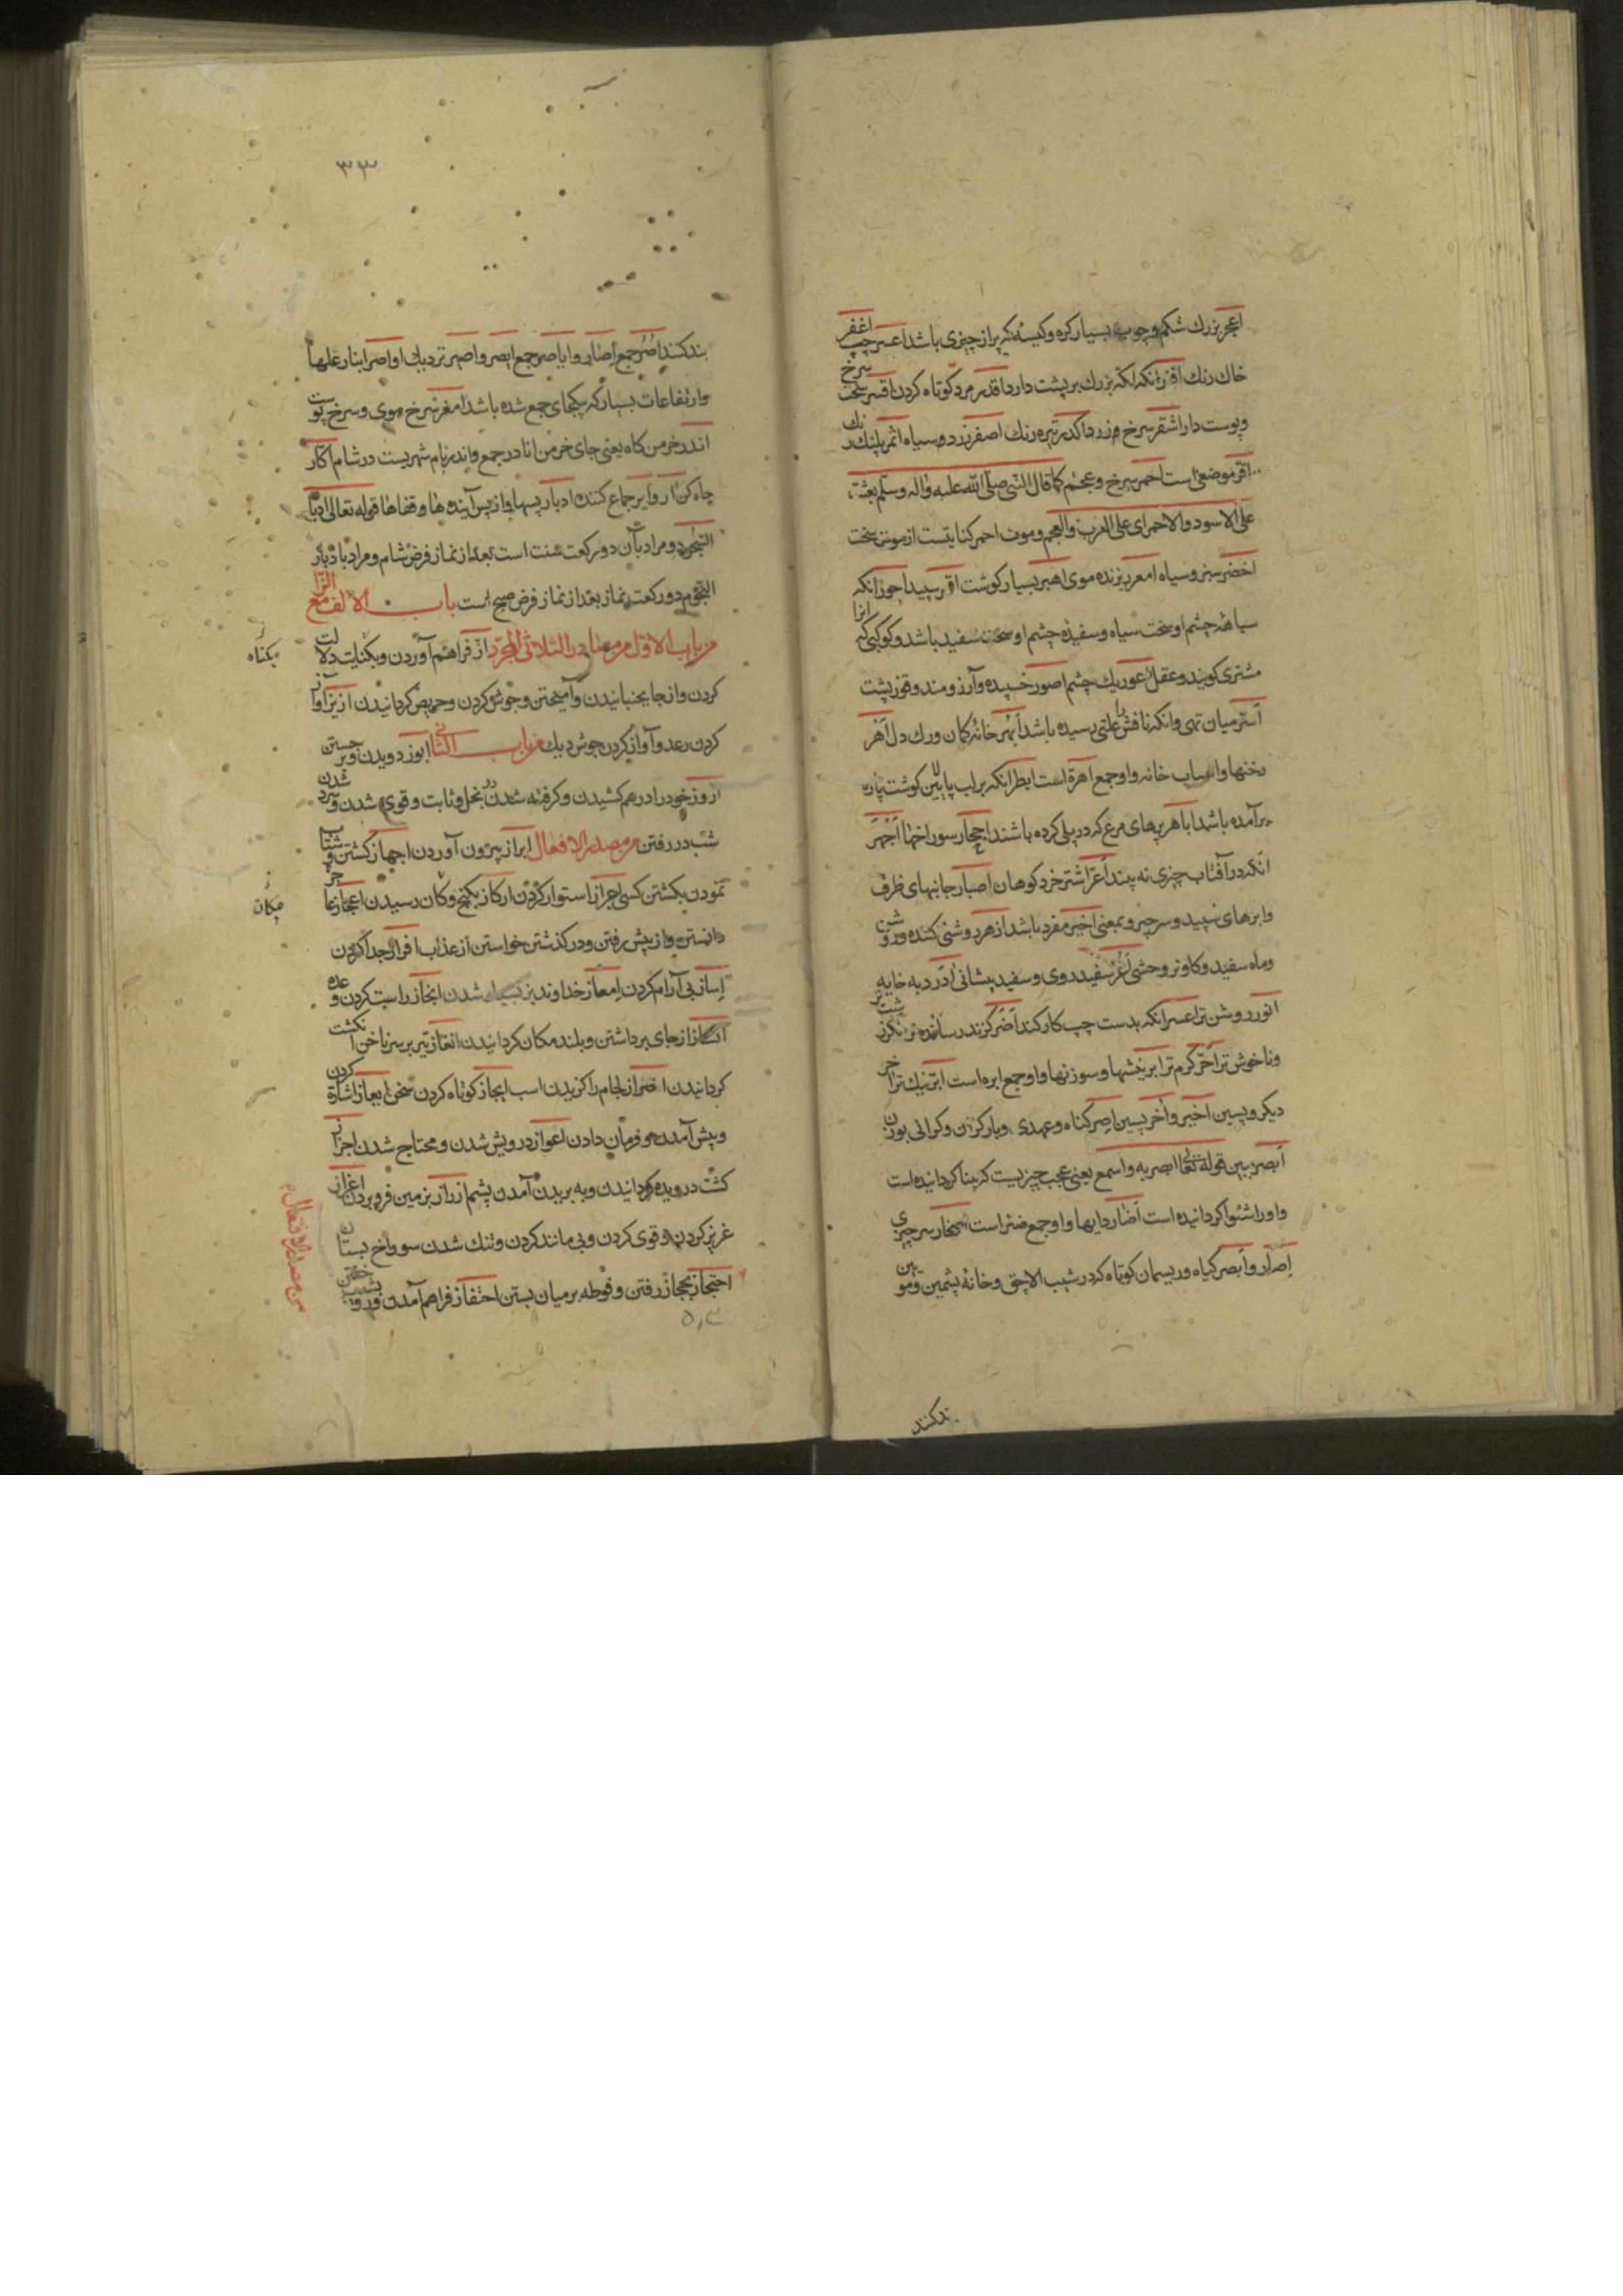 اعجر بزرك شكم و چوب بسيار كره و كيسه كه پر از چيزى باشد اعسر چپ اغفر
خاك رنك اقزر انكه لكه بزرك بر پشت دارد اقدر مرد كوتاه كردن اقسر سخت سرخ
و پوست دار اشقر سرخ و زرد اكدر تيره رنك اصفر زرد و سياه انمر پلنك رنك
اقر موضعى است احمر سرخ و عجم كما قال النبى صلى الله عليه واله وسلم بعثت
على الاسود والاحمر اى على العرب والعجم و موت احمر كنايتست از موت سخت
اخضر سبز و سياه امعر ريزنده موى اهبر بسيار كوشت اقمر سپيد احور انكه
سياهئه چشم او سخت سياه و سفيده چشم او سخت سفيد باشد و كوكبى كه انرا
مشترى كويند و عقل اعور يك چشم اصور خسپيده و آرزومند و قوز پشت
ابتر ميان تهى وانكه نافش را علتى رسيده باشد ابهر خانه كمان و رك دل اهر
رختها و اسباب خانه و او جمع اهرة است ابظر انكه بر لب پايين كوشت پاره
بر آمده باشد اباهر پرهاى مرغ كه در پلى كرده باشند احجار سوراخها اجهر
انكه در آفتاب چيزى نه بيند اعر اشتر خرد كوهان اصبار جانبهاى ظرف
و ابرهاى سپيد و سر چيز و بمعنى اخير مفرد باشد ازهر روشنى كننده و روشن
و ماه سفيد و كاو نر وحشى اغر سفيد روى و سفيد پيشانى ادر دبه خايه
انور روشن تر اعسر انكه بدست چپ كار كند اضر كزند رساننده تر انكر زشت تر
و ناخوش تر احر كرم تر ابر نيشها و سوزنها و او جمع ابره است ابر نيك تر اخر
ديكر و پسين اخير و اخر پسين اصر كناه و عهدى و بار كران و كرانى بوزن
ابصر ببين قوله تعالى ابصر به و اسمع يعنى عجب چيزيست كه بينا كردانيده است
و او را شنوا كردانيده است اضار دايها و او جمع ضئر است اصحار سر چيزى
اصار و ابصر كياه و ريسمان كوتاه كه در شيب الاچق و خانه پشمين و موبين
بند كنند
٣٣
بند كنند اصر جمع اصار و اياصر جمع ابصر و اصير نزديك اواصر انبار غلها
و ارتفاعات بسيار كه بيكجاى جمع شده باشد امغر سرخ موى و سرخ پوست
اندر خرمن كاه يعنى جاى خرمن انادر جمع و اندر نام شهريست در شام اكار
چاه كن ار و اير جماع كننده ادبار پسها و از پس آينده ها و قفاها قوله تعالى ادبار
السجود و مراد بآن دو ركعت سنت است بعد از نماز فرض شام و مراد بادبار
النجوم دو ركعت نماز بعد از نماز فرض صبح است باب الالف مع الزا
من باب الاول من مصادر الثلاثى المجرد از فراهم آوردن و بكنايت دلالت
كردن و از جا بجنبانيدن و آميختن و جوش كردن و حريص كردانيدن ازيز آواز
كردن رعد و آواز كردن جوش ديك من باب الثانى ابوز دويدن و برجستن
اروز خود را در هم كشيدن و كرفته شدن در بخل و ثابت و قوى شدن و سرد شدن
شب در رفتن من مصدر الافعال ابراز بيرون آوردن اجهاز كشتن و شتاب
نمودن بكشتن كسى احراز استوار كردن اركاز بكنج و كان رسيدن اعجاز عاجز
دانستن و از پيش رفتن و در كذشتن خواستن از عذاب افراز جدا كردن
بى آرام كردن امعاز خداوند بز بسيار شدن انجاز راست كردن وعده
انشاز از جاى برداشتن و بلند مكان كردانيدن انفاز تير بر سر ناخن انكشت
كردانيدن لجام را كزيدن اسب ايجاز كوتاه كردن سخن ايعاز اشارة كردن
و پيش آمدن و فرمان دادن اعواز درويش شدن و محتاج شدن اجزاز
كشت درويده كردانيدن و به بريدن آمدن پشم ارزاز بزمين فرو بردن اغزاز
غريز كردن و قوى كردن و بى مانند كردن و تنك شدن سوراخ پستان
احتجاز بحجاز رفتن و فوطه بر ميان بستن احتفاز فراهم آمدن
بكناه
بكان
من مصدر الافتعال